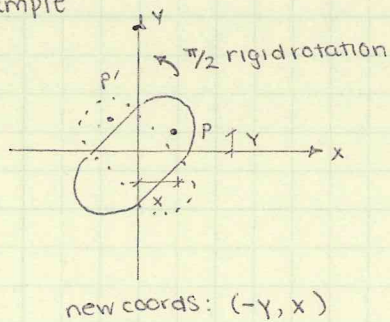 ample
Y
π/2 rigid rotation
P'
P
Y
X
X
new coords: (-Y, X)